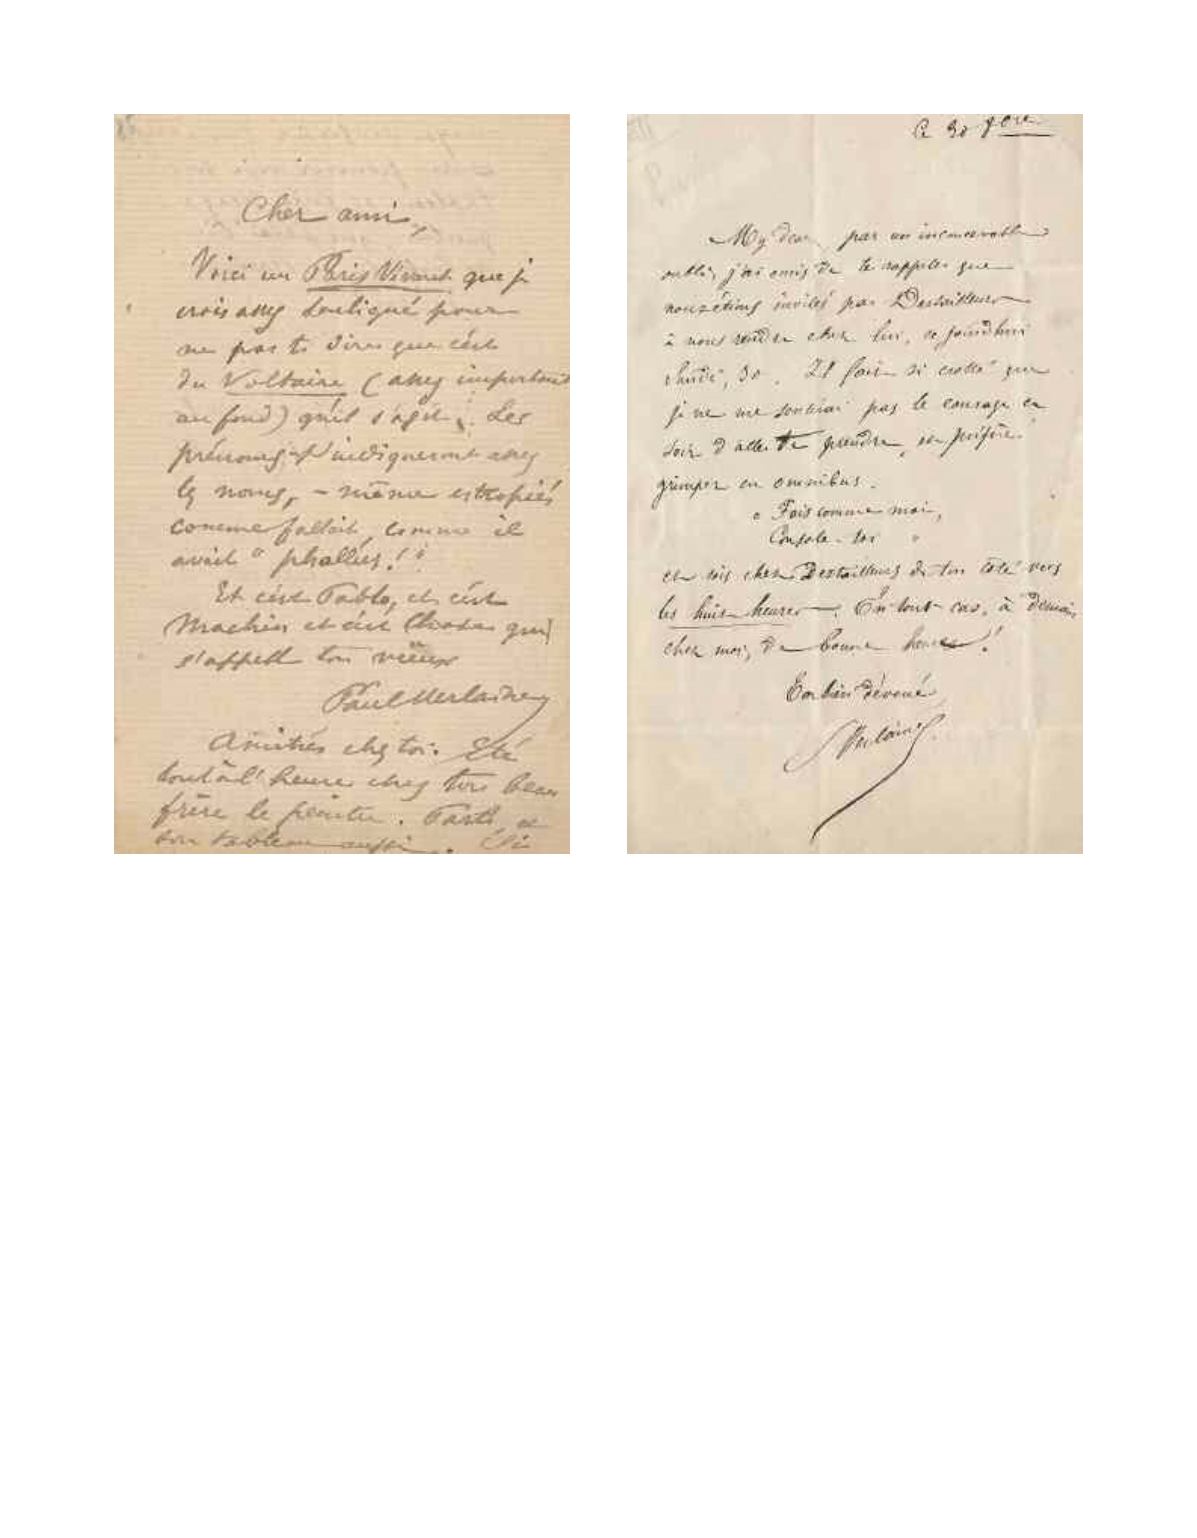 Cher ami,
Voici un Paris Vivant que je
crois assez souligné pour
ne pas te dire que c'est
du Voltaire (assez important
au fond) qu'il s'agit. Les
prénoms t'indiqueront assez
les noms, – même estropiés
comme fallait, comme il
avait " phallus!!
Et c'est Pablo, et c'est
Machin et c'est Chose qui
s'appelle ton vieux
Paul Verlaine
Amitiés chez toi. Été
tout à l'heure chez ton beau
frère le peintre. Parlé
ton tableau aussi.
Ce 30 9bre
My dear, par un inconcevable
oubli, j'ai omis de te rappeler que
nous étions invités par Destailleurs
à nous rendre chez lui, ce jourd'hui
lundi, 30. Il fait si crotté que
je ne me sentirai pas le courage ce
soir d'aller te prendre, et préfère
grimper en omnibus.
« Fais comme moi,
Console-toi »
et sois chez Destailleurs de ton côté vers
les huit heures. En tout cas, à demain
chez moi, de bonne heure!
Ton bien dévoué
P Verlaine.